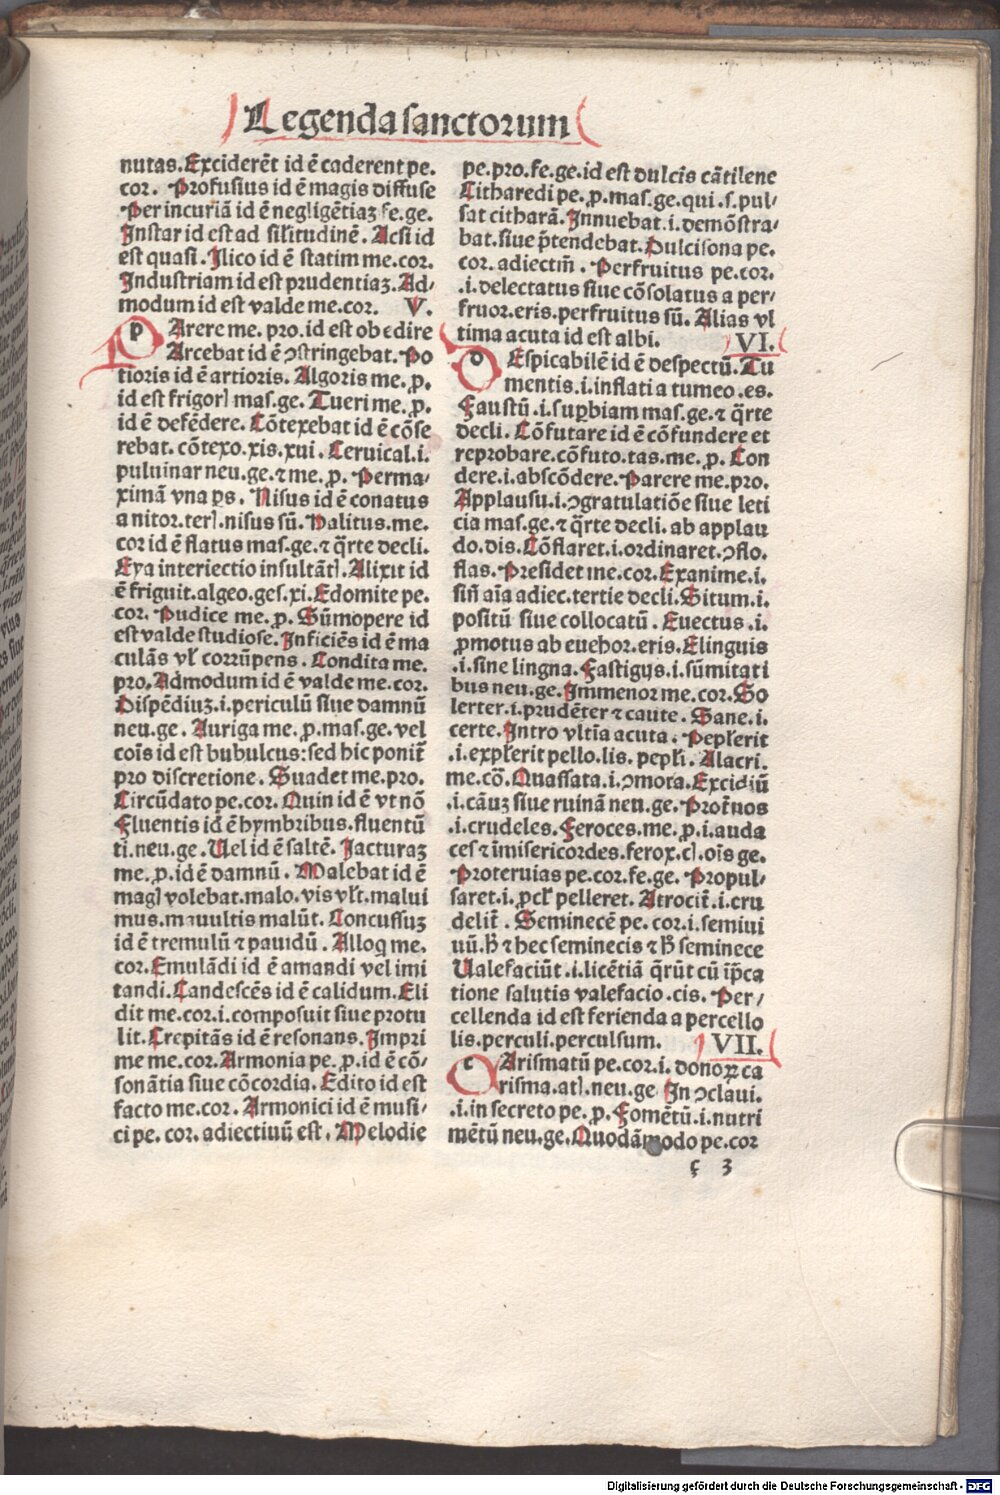 Legenda sanctorum
nutas.Exciderēt id ē caderent pe.
cor. Profusius id ē magis diffuse
Per incuriā id ē negligētiaꝫ fe.ge.
Instar id est ad sil̄itudinē. Acsi id
est quasi. Ilico id ē statim me.cor.
Industriam id est prudentiaꝫ. Ad-
modum id est valde me.cor. V.
PArere me. pro. id est obedire
Arcebat id ē ꝯstringebat. Po
tioris id ē artioris. Algoris me. ꝓ.
id est frigorꝭ mas.ge. Tueri me. ꝓ.
id ē defēdere. Cōtexebat id ē cōse
rebat. cōtexo.xis.xui. Ceruical.i.
puluinar neu.ge.⁊ me. ꝓ. Perma/
ximā vna ps. Nisus id ē conatus
a nitor.terꝭ.nisus sū. Halitus.me.
cor id ē flatus mas.ge.⁊ q̄rte decli.
Eya interiectio insultātꝭ. Alixit id
ē friguit.algeo.ges.xi. Edomite pe.
cor. Pudice me. ꝓ. Sūmopere id
est valde studiose. Inficiēs id ē ma
culās vl̓ corrūpens. Condita me.
pro. Admodum id ē valde me.cor.
Dispēdiuꝫ.i.periculū siue damnū
neu.ge. Auriga me. ꝓ.mas.ge.vel
cois̄ id est bubulcus:sed hic ponit̄
pro discretione. Suadet me.pro.
Circūdato pe.cor. Quin id ē vt nō
Fluentis id ē hymbribus.fluentū
ti.neu.ge. Uel id ē saltē. Jacturaꝫ
me. ꝓ.id ē damnū. Malebat id ē
magꝭ volebat.malo.vis vl̓t.malui
mus.mauultis malūt. Concussuꝫ
id ē tremulū ⁊ pauidū. Alloq̄ me.
cor. Emulādi id ē amandi vel imi
tandi. Candescēs id ē calidum. Eli
dit me.cor.i.composuit siue protu
lit. Crepitās id ē resonans. Impri
me me.cor. Armonia pe. ꝓ.id ē cō-
sonātia siue cōcordia. Edito id est
facto me.cor. Armonici id ē musi/
ci pe. cor. adiectiuū est. Melodie
pe.pro.fe.ge.id est dulcis cātilene
Citharedi pe. ꝓ.mas.ge.qui .s.pul/
sat citharā. Innuebat.i.demōstra/
bat.siue p̄tendebat. Dulcisona pe.
cor. adiectm̄. Perfruitus pe.cor.
.i.delectatus siue cōsolatus a per/
fruor.eris.perfruitus sū. Alias vl
tima acuta id est albi. VI.
DEspicabilē id ē despectū. Tu
mentis.i.inflati a tumeo.es.
Faustū.i.suꝑbiam mas.ge.⁊ q̄rte
decli. Cōfutare id ē cōfundere et
reprobare.cōfuto.tas.me. ꝓ. Con
dere.i.abscōdere. Parere me.pro.
Applausu.i.ꝯgratulatiōe siue leti
cia mas.ge.⁊ q̄rte decli. ab applau
do.dis. Cōflaret.i.ordinaret.ꝯflo.
flas. Presidet me.cor. Exanime.i.
sin̄ aīa adiec.tertie decli. Situm.i.
positū siue collocatū. Euectus .i.
ꝓmotus ab euehor.eris. Elinguis
.i.sine lingna. Fastigijs.i.sūmitati
bus neu.ge. Immenor me.cor. So
lerter.i.prudēter ⁊ caute. Sane.i.
certe. Intro vltia acuta. Pepl̓erit
.i.expl̓erit pello.lis. pepl̓i. Alacri.
me.cō. Quassata.i.ꝯmota. Excidiū
.i.cāuꝫ siue ruinā neu.ge. Prot̄nos
.i.crudeles. Feroces.me. ꝓ.i.auda
ces ⁊ īmisericordes.ferox.cꝭ.ois̄ ge.
Proteruias pe.cor.fe.ge. Propul/
saret.i.ꝓcl̓ pelleret. Atrocit̄.i.cru
delit̄. Seminecē pe. cor.i.semiui
uū.ħ ⁊ hec seminecis ⁊ ħ seminece
Ualefaciūt.i.licētiā q̄rūt cū īp̄ca
tione salutis valefacio.cis. Per/
cellenda id est ferienda a percello
lis.perculi.perculsum. VII.
CArismatū pe.cor.i. donoꝝ ca
risma.atꝭ.neu.ge In ꝯclaui.
.i.in secreto pe. ꝓ. Fomētū.i.nutri
mētū neu.ge. Quodāmodo pe.cor
ç 3
Digitalisierung gefördert durch die Deutsche Forschungsgemeinschaft - DFG